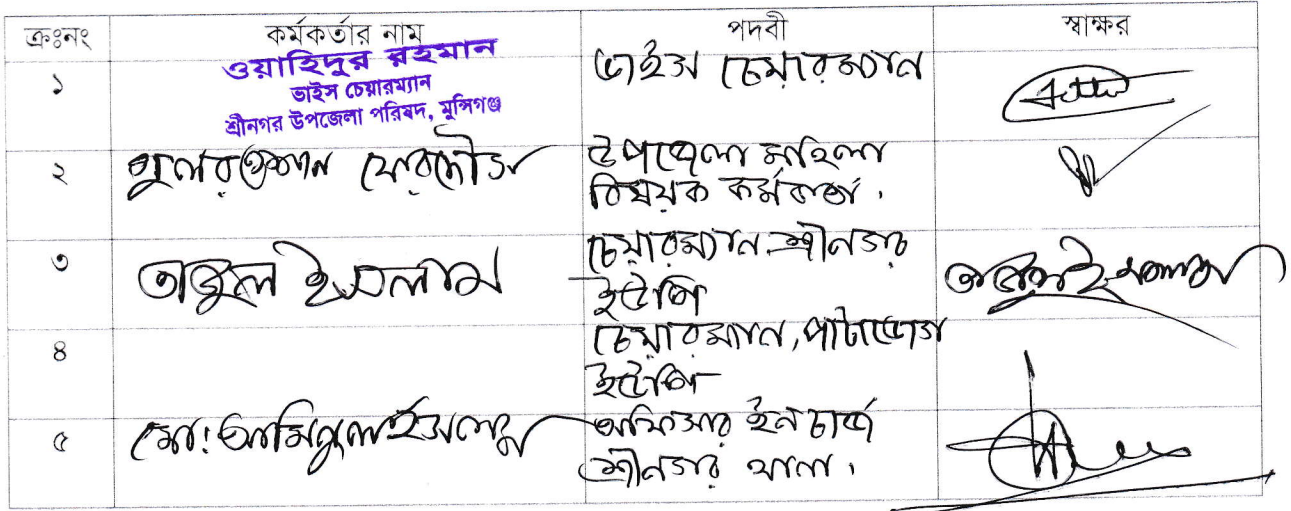 ক্রঃনং কর্মকর্তার নাম পদবী স্বাক্ষর
১ ওয়াহিদুর রহমান ভাইস চেয়ারম্যান
ভাইস চেয়ারম্যান
শ্রীনগর উপজেলা পরিষদ, মুন্সিগঞ্জ
২ গুলরওশান ফেরদৌস উপজেলা মহিলা
বিষয়ক কর্মকর্তা।
৩ তাজুল ইসলাম চেয়ারম্যান শ্রীনগর
ইউপি
তাজুল ইসলাম
৪ চেয়ারম্যান, পাটাভোগ
ইউপি
৫ মো: আমিনুল ইসলাম অফিসার ইনচার্জ
শ্রীনগর থানা।